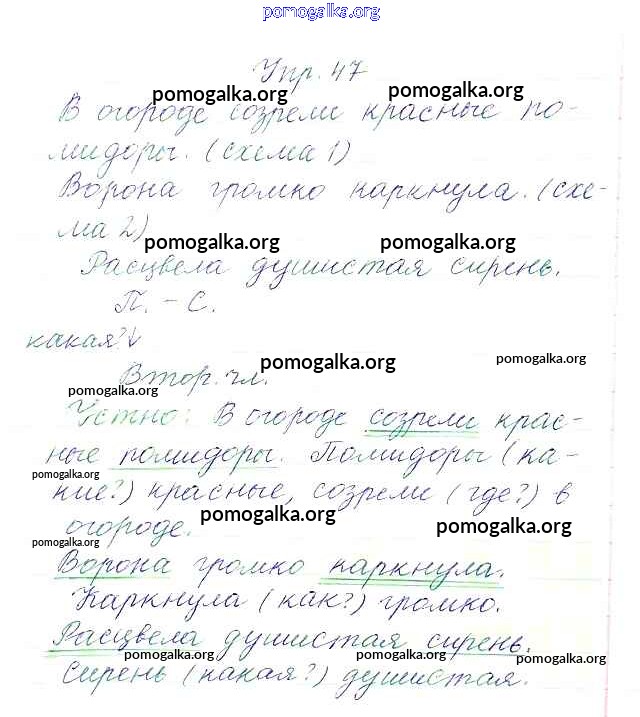 pomogalka.org
Упр. 47
pomogalka.org pomogalka.org
В огороде созрели красные по-
мидоры. (схема 1)
Ворона громко каркнула. (схе-
ма 2)
pomogalka.org pomogalka.org
Расцвела душистая сирень.
П. – С.
какая?↓
pomogalka.org pomogalka.org
Втор. чл.
pomogalka.org
Устно: В огороде созрели крас-
ные помидоры. Помидоры (ка-
pomogalka.org
кие?) красные, созрели (где?) в
pomogalka.org pomogalka.org
огороде.
pomogalka.org
Ворона громко каркнула.
Каркнула (как?) громко.
Расцвела душистая сирень.
pomogalka.org pomogalka.org pomogalka.org
Сирень (какая?) душистая.